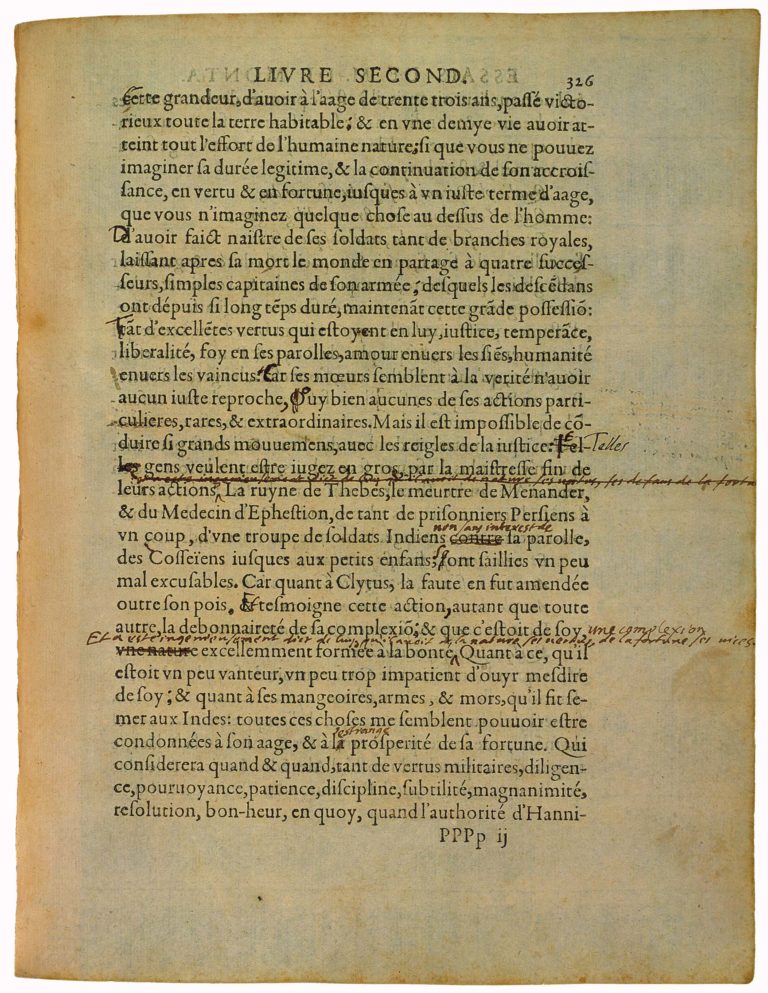 LIVRE SECOND. 326
Cette grandeur, d'auoir à l'aage de trente trois ans, passé victo-
rieux toute la terre habitable; & en vne demye vie auoir at-
teint tout l'effort de l'humaine nature; si que vous ne pouuez
imaginer sa durée legitime, & la continuation de son accrois-
sance, en vertu & en fortune, iusques à vn iuste terme d'aage,
que vous n'imaginez quelque chose au dessus de l'homme:
D'auoir faict naistre de ses soldats tant de branches royales,
laissant apres sa mort le monde en partage à quatre succes-
seurs, simples capitaines de son armée; desquels les descēdans
ont dépuis si long tēps duré, maintenāt cette grāde possessiō:
Tāt d'excellētes vertus qui estoyent en luy, iustice, temperāce,
liberalité, foy en ses parolles, amour enuers les siēs, humanité
enuers les vaincus: Car ses mœurs semblent à la verité n'auoir
aucun iuste reproche, Ouy bien aucunes de ses actions parti-
culieres, rares, & extraordinaires. Mais il est impossible de cō-
duire si grands mouuemens, auec les reigles de la iustice: Tel- Telles
les gens veulent estre iugez en gros, par la maistresse fin de
leurs actions. La ruyne de Thebes, le meurtre de Menander,
& du Medecin d'Ephestion, de tant de prisonniers Persiens à
non sans interest de
vn coup, d'vne troupe de soldats Indiens contre sa parolle,
des Cosseïens iusques aux petits enfans: sont saillies vn peu
mal excusables. Car quant à Clytus, la faute en fut amendée
outre son pois, & tesmoigne cette action, autant que toute
autre, la debonnaireté de sa complexiō; & que c'estoit de soy une complexion
Et a esté ingenieusement dict de luy, qu'il auoit de la nature ses vertus, de la fortune ses vices.
vne nature excellemment formée à la bonté. Quant à ce, qu'il
estoit vn peu vanteur, vn peu trop impatient d'ouyr mesdire
de soy; & quant à ses mangeoires, armes, & mors, qu'il fit se-
mer aux Indes: toutes ces choses me semblent pouuoir estre
l'estrange
condonnées à son aage, & à la prosperité de sa fortune. Qui
considerera quand & quand, tant de vertus militaires, diligen-
ce, pouruoyance, patience, discipline, subtilité, magnanimité,
resolution, bon-heur, en quoy, quand l'authorité d'Hanni-
PPPp ij